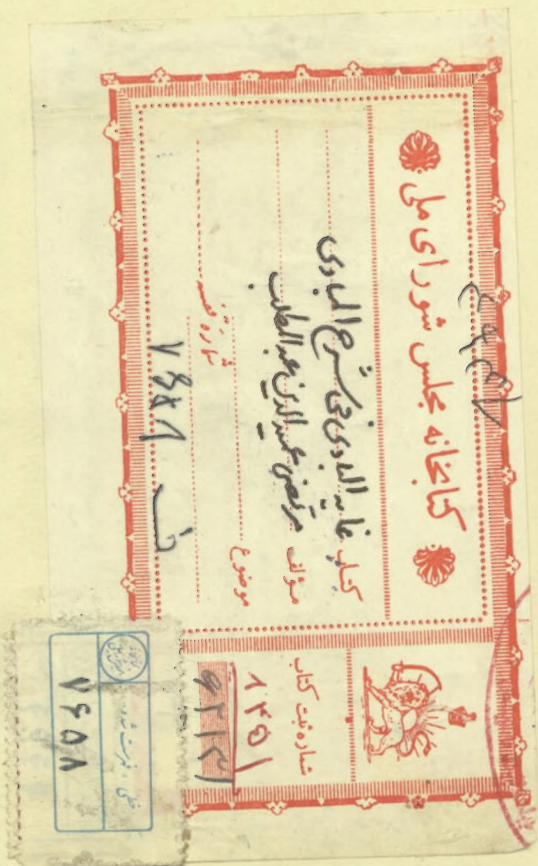 کتابخانه مجلس شورای ملی
کتاب غایة البادی فی شرح المبادی
مؤلف مرتضی عمیدالدین عبدالمطلب
موضوع
شماره قفسه
ف ۷۶۵۸
شماره ثبت کتاب
خطی فهرست شده
۷۶۵۸